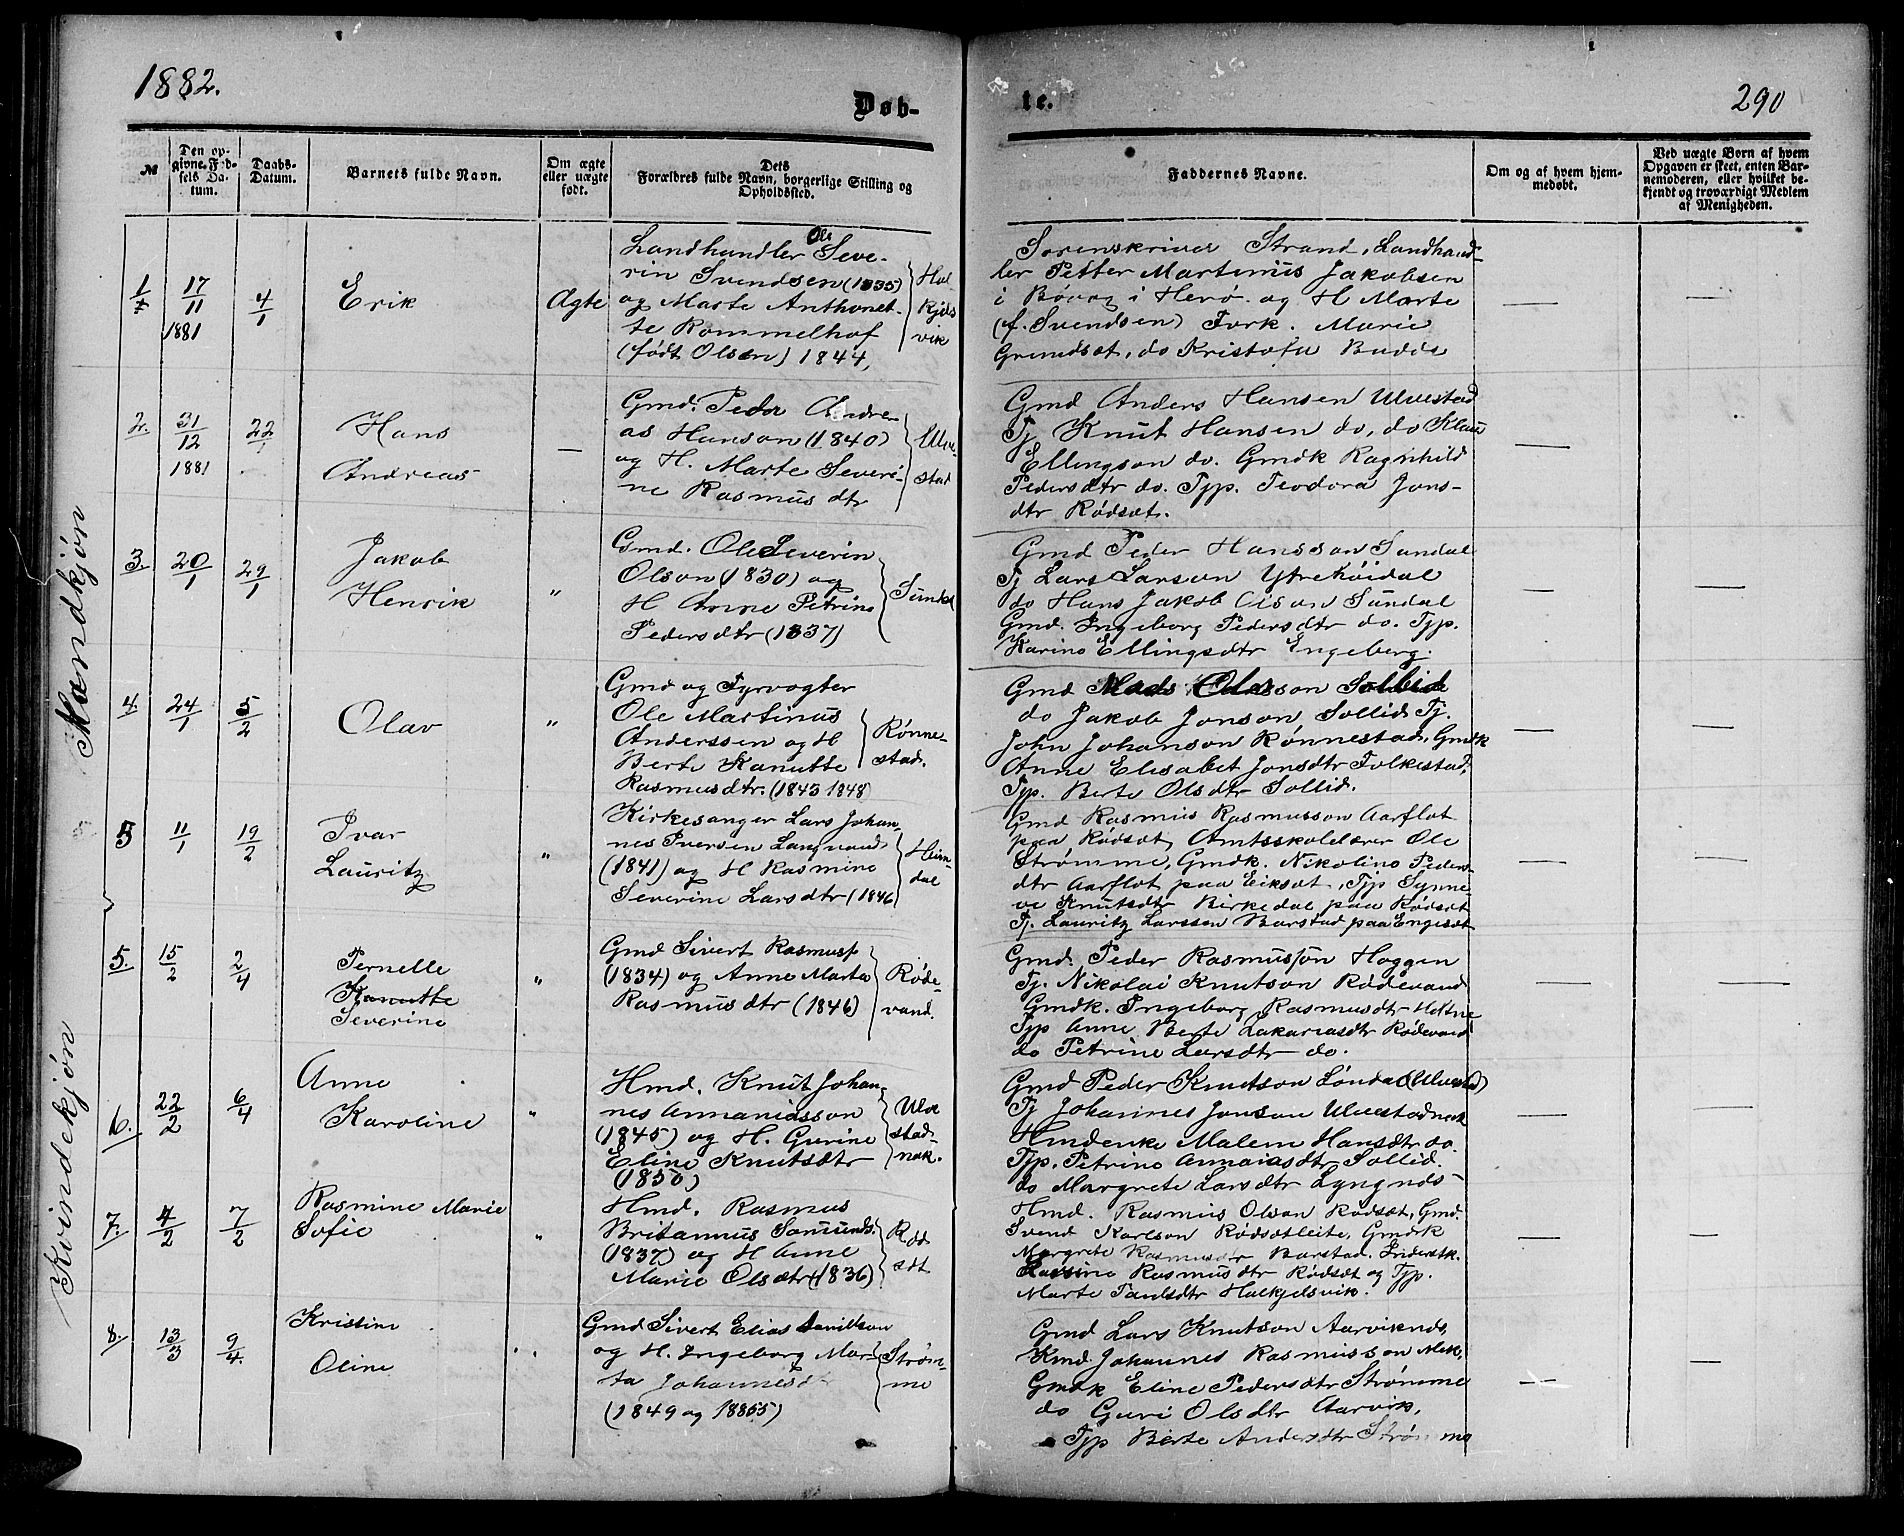 1882.
Døb-
te.
290
№
Den op-
givne Fød-
sels Da-
tum.
Daabs-
Datum.
Barnets fulde Navn.
Om ægte
eller uægte
født.
Dets
Forældres fulde Navn, borgerlige Stilling og
Opholdssted.
Faddernes Navne.
Om og af hvem hjem-
medøbt.
Ved uægte Børn af hvem
Opgaven er skeet, enten Bar-
nemoderen, eller hvilket be-
kjendt og troværdigt Medlem
af Menigheden.
Mandkjøn
1
17/11 1881
4/1
Erik
Ægte
Landhandler Ole Seve-
rin Svendsen (1835)
og Marte Anthonet-
te Rommelhof
(født Olsen) 1844,
Hal
kjels
vik
Sorenskriver Strand, Landhand-
ler Petter Martinus Jakobsen
i Bøvag i Herø og H Marte
(f. Svendsen) Frrk. Marie
Grundsæt, do Kristofa Budde
2.
31/12 1881
22/1
Hans
Andreas
—
Gmd. Peder Andre-
as Hanson (1840)
og H. Marte Severi-
ne Rasmusdtr
Ulve-
stad
Gmd Anders Hansen Ulvestad
Tj Knut Hansen do, do Klaus
Ellingson do. Gmdk Ragnhild
Pedersdtr do. Tjp. Teodora Jons-
dtr Rødsæt.
3.
20/1
29/1
Jakob
Henrik
"
Gmd. Ole Severin
Olson (1830) og
H Anne Petrine
Pedersdtr (1837)
Sundal
Gmd Peder Hansson Sundal
Tj Lars Larson Ytrehøidal
do Hans Jakob Olson Sundal
Gmd. Ingeborg Pedersdtr do. Tjp.
Karine Ellingsdtr Engeberg.
4.
24/1
5/2
Olav
"
Gmd og Fyrvogter
Ole Martinus
Anderssen og H
Berte Kanutte
Rasmusdtr. (1843 1848)
Rønne-
stad.
Gmd Mads Olsson Sollid
do Jakob Jonson, Sollid Tj.
John Johanson Rønnestad, Gmdk
Anne Elisabet Jonsdtr Folkestad,
Tjp. Berte Olsdtr Sollid.
5
11/1
19/2
Ivar
Lauritz
"
Kirkesanger Lars Johan-
nes Iversen Langvand
(1841) og H Rasmine
Severine Larsdtr (1846
Heim-
dal
Gmd Rasmus Rasmusson Aarflot
paa Rødsæt, Amtsskolelærer Ole
Strømme, Gmdk. Nikoline Peders-
dtr Aarflot paa Eiksæt, Tjp Synne-
ve Knutsdtr Birkedal paa Rødsæt
Tj. Lauritz Larssen Barstad paa Engesæt
Kvindekjøn
5.
15/2
2/4
Pernelle
Kanutte
Severine
"
Gmd Sivert Rasmuss
(1834) og Anne Marta
Rasmusdtr (1846)
Røde-
vand.
Gmd. Peder Rasmusson Haggen
Tj. Nikolai Knutson Rødevand
Gmdk. Ingeborg Rasmusdtr Heltne
Tjp Anne Berte Zakariasdtr Rødevand
do Petrine Larsdtr do.
6.
22/2
6/4
Anne
Karoline
"
Hmd. Knut Johan-
nes Annaniasson
(1845) og H. Gurine
Eline Knutsdtr
(1850)
Ulve
stad-
nak.
Gmd Peder Knutson Løndal (Ulvestad)
Tj Johannes Jonson Ulvestadnak
Hmdenke Malene Hansdtr do
Tjp. Petrine Annaiasdtr Sollid.
do Margrete Larsdtr Lyngnes
7.
4/2
7/2
Rasmine Marie
Sofie
"
Hmd. Rasmus
Britannus Samunds.
(1837) og H Anne
Marie Olsdtr (1836)
Rød
sæt
Hmd. Rasmus Olson Rødsæt, Gmd.
Svend Karlson Rødsætleite, Gmdrk
Margrete Rasmusdtr Barstad. Inderstk.
Rasmine Rasmusdtr Rødsæt og Tjp.
Marte Paulsdtr Halkjelsvik.
8.
13/3
9/4.
Kristine
Oline
"
Gmd Sivert Elias Davidson
og H. Ingeborg Mar-
ta Johannesdt
(1849 og 1855)
Strøm-
me
Gmd Lars Knutson Aarviknes,
Kmd. Johannes Rasmusson Mek,
Gmdk Eline Pedersdtr Strømme
do Guri Olsdtr Aarvik,
Tjp Berte Andersdtr Strømme